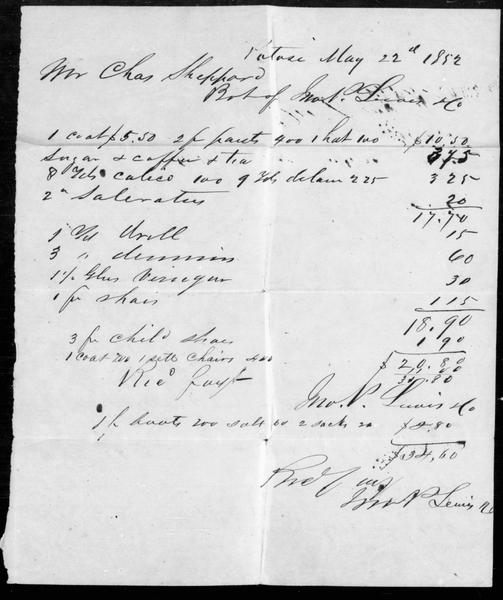 Potosi May 22d 1852
Mr Chas Sheppard
Bot of Jno. P. Lewis & Co
1 coat $5.50 2 pr pants 400 1 hat 100 $10.50
Sugar & coffee & tea 3.75
8 Yds calico 100 9 Yds delain 225 3 25
2 " Saleratus 20
17.70
1 Yd drill 15
3 " dennims 60
1½ Glns Vinegar 30
1 pr shoes 1 15
18.90
3 pr child shoes 1 90
1 coat 200 1 sett chairs 400
$20.80
Recd Payt
Jno. P. Lewis & Co
1 pr boots 200 salt 60 2 sacks 20 $4.80
$34.60
Recd
Jno P Lewis & Co